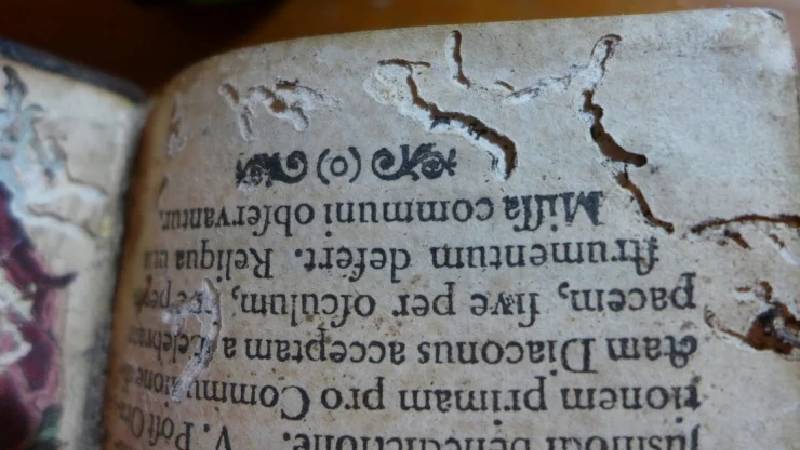 juſmodi benedictione. V. Poſt
tionem primam pro Communione
ctam Diaconus acceptam a celebran
pacem, ſive per oſculum,
ſtrumentum defert. Reliqua uti
Miſſa communi obſervantur.
(o)